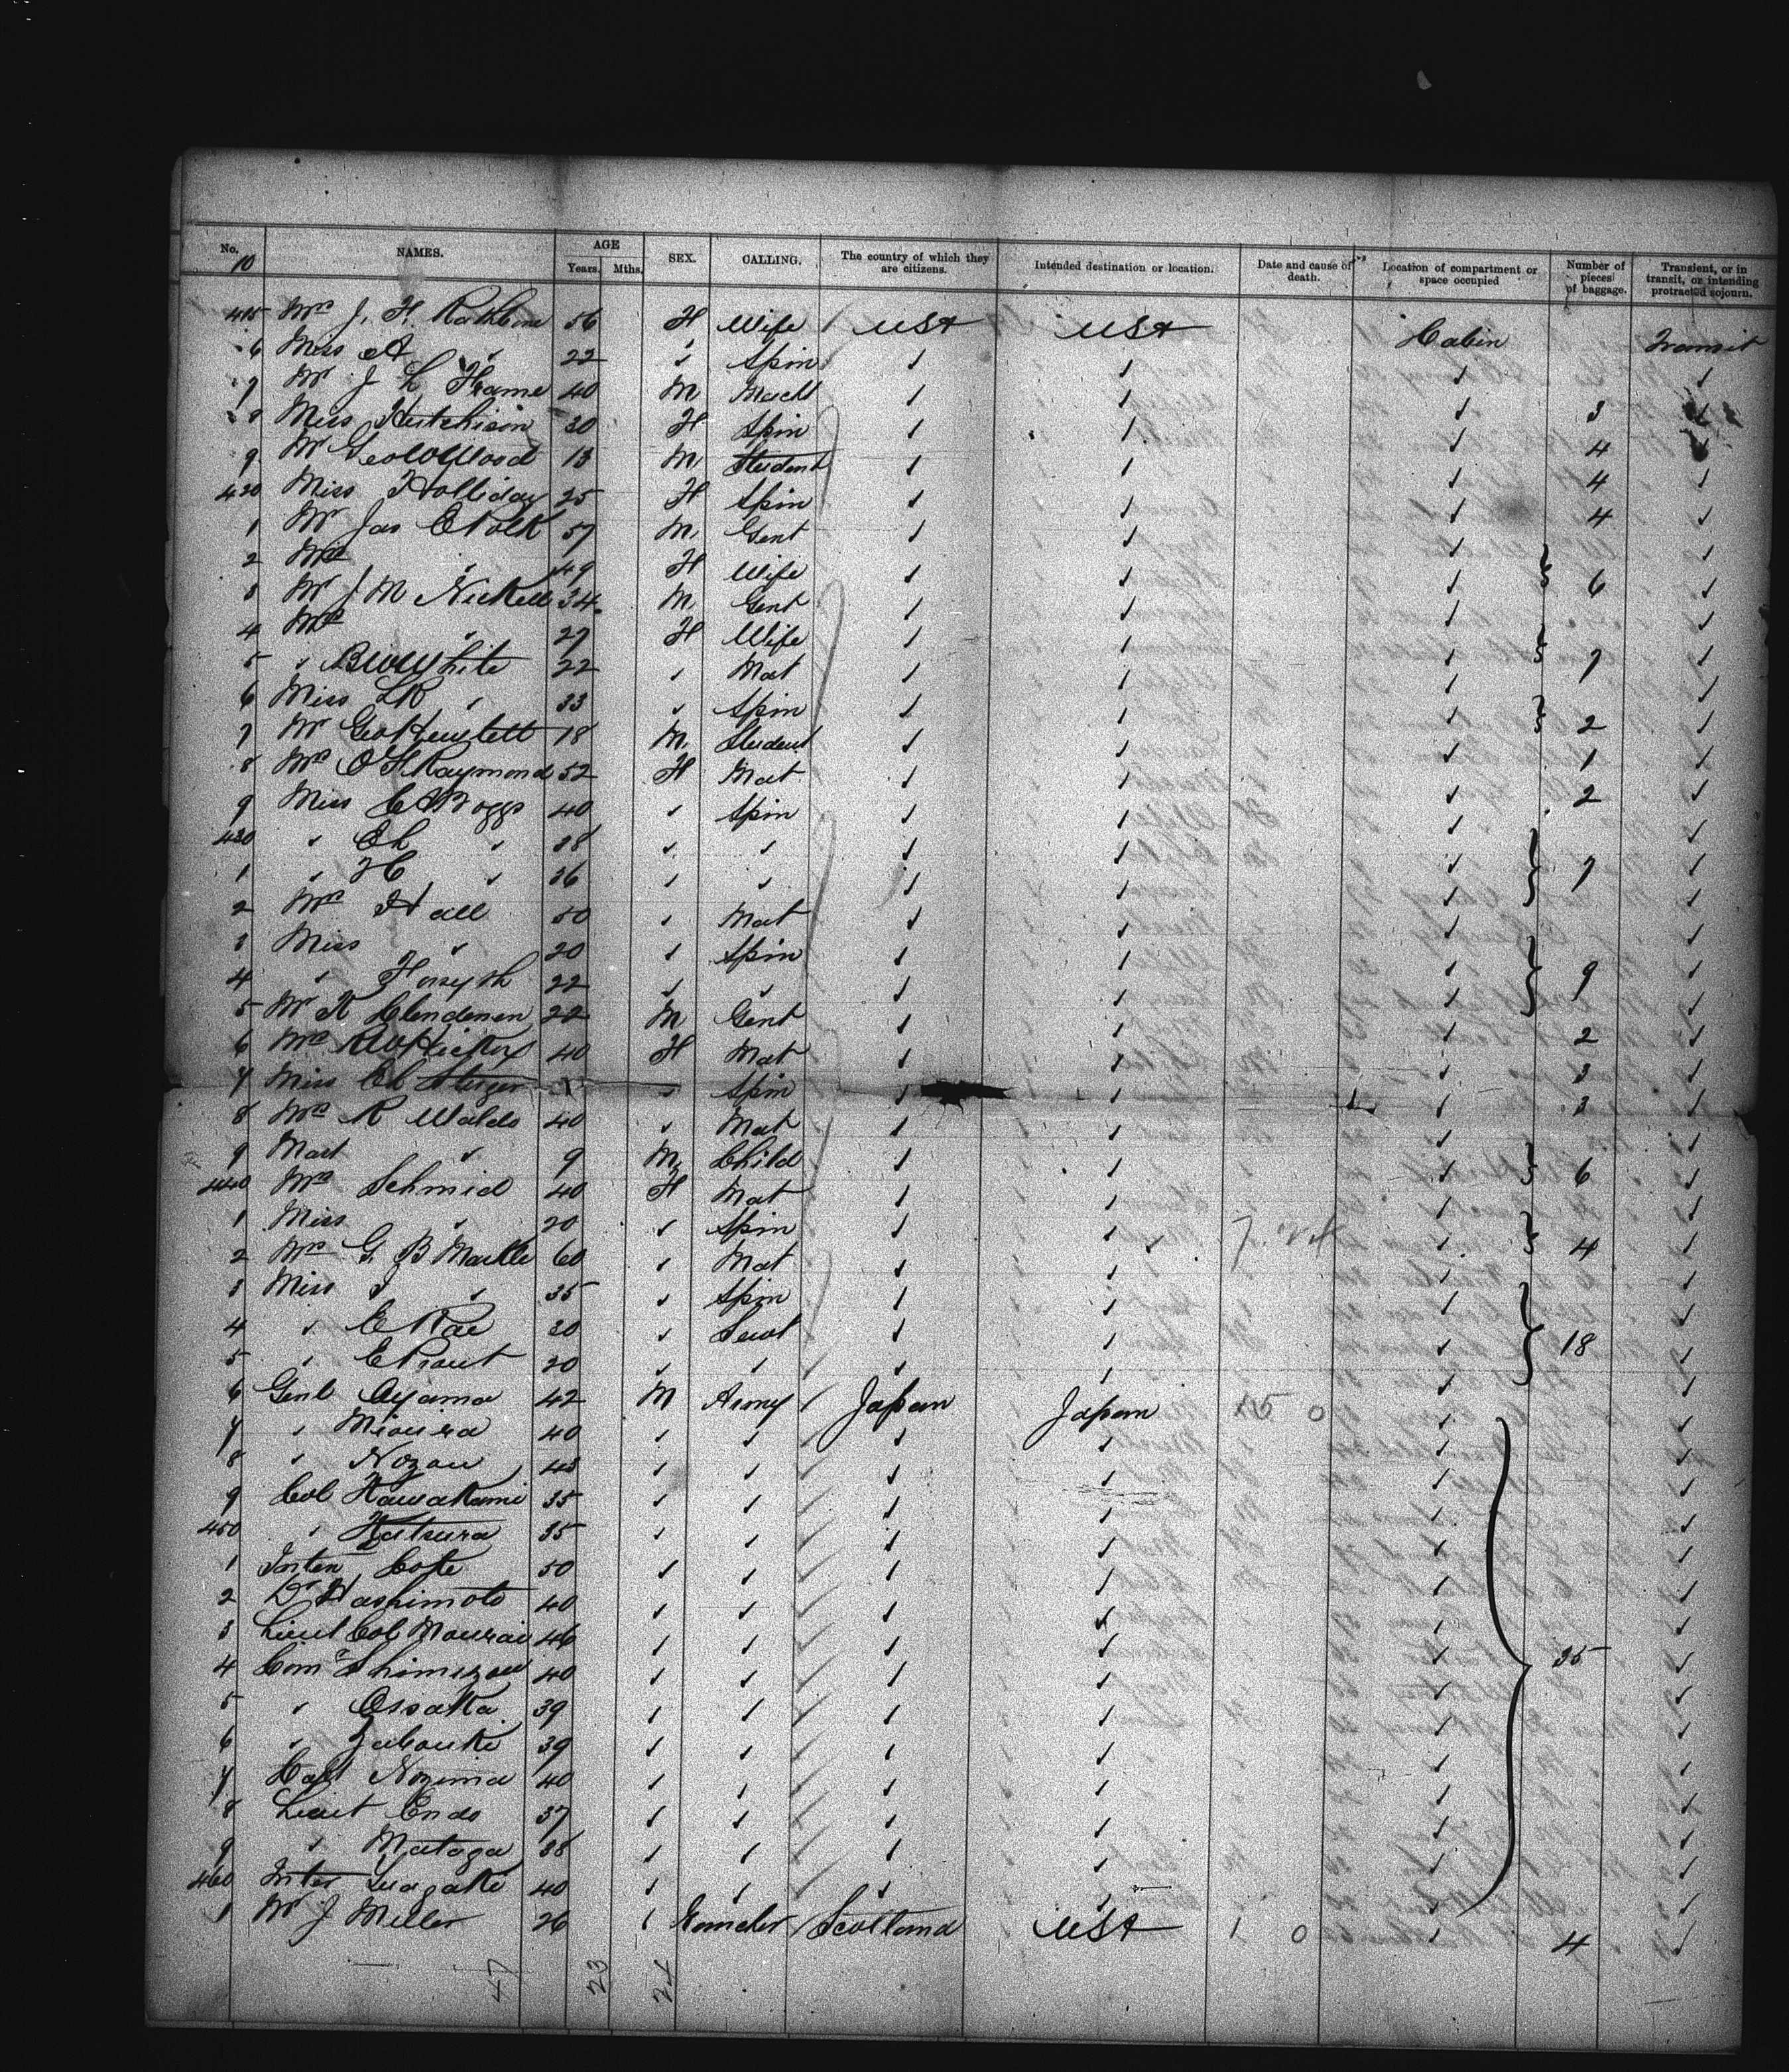 No. NAMES. AGE SEX. CALLING. The country of which they are citizens. Intended destination or location. Date and cause of death. Location of compartment or space occupied Number of pieces of baggage. Transient, or in transit, or intending protracted sojourn.
10 Years. Mths.
415 Mrs J. H. Rathbone 56 F Wife USA USA Cabin Transit
6 Miss A ✓ 22 ✓ Spin ✓ ✓ ✓ ✓
7 Mr J L Frame 40 M Macht ✓ ✓ ✓ 3 ✓
8 Miss Hutchison 30 F Spin ✓ ✓ ✓ 4 ✓
9 Mr Geo W Wood 13 M Student ✓ ✓ ✓ 4 ✓
420 Miss Holliday 25 F Spin ✓ ✓ ✓ 4 ✓
1 Mr Jas E Polk 57 M Gent ✓ ✓ ✓ ✓
2 Mrs ✓ 49 F Wife ✓ ✓ ✓ 6 ✓
3 Mr J M Nickell 34 M Gent ✓ ✓ ✓ ✓
4 Mrs ✓ 27 F Wife ✓ ✓ ✓ 7 ✓
5 ✓ B W White 22 ✓ Mat ✓ ✓ ✓ ✓
6 Miss L R ✓ 33 ✓ Spin ✓ ✓ ✓ 2 ✓
7 Mr Geo Hewlett 18 M Student ✓ ✓ ✓ 1 ✓
8 Mrs O H Raymond 52 F Mat ✓ ✓ ✓ 2 ✓
9 Miss C A Boggs 40 ✓ Spin ✓ ✓ ✓ ✓
430 ✓ E L ✓ 38 ✓ ✓ ✓ ✓ ✓ 7 ✓
1 ✓ H ✓ 36 ✓ ✓ ✓ ✓ ✓ ✓
2 Mrs Hall 50 ✓ Mat ✓ ✓ ✓
3 Miss ✓ 20 ✓ Spin ✓ ✓ ✓ 9 ✓
4 ✓ Forsyth 22 ✓ ✓ ✓ ✓ ✓ ✓
5 Mr K Clendenen 22 M Gent ✓ ✓ ✓ 2 ✓
6 Mrs 40 F Mat ✓ ✓ ✓ 3 ✓
7 Miss Spin ✓ ✓ ✓ 3 ✓
8 Mrs R Waldo 40 ✓ Mat ✓ ✓ ✓ ✓
9 Mast ✓ 9 M Child ✓ ✓ ✓ 6 ✓
440 Mrs Schmid 40 F Mat ✓ ✓ ✓ ✓
1 Miss ✓ 20 ✓ Spin ✓ ✓ ✓ 4 ✓
2 Mrs G B Markle 60 ✓ Mat ✓ ✓ ✓ ✓
3 Miss I ✓ 35 ✓ Spin ✓ ✓ ✓ ✓
4 ✓ E Rae 30 ✓ Servt ✓ ✓ ✓ 18 ✓
5 ✓ E Prout 20 ✓ ✓ ✓ ✓ ✓ ✓
6 Genl Oyama 42 M Army Japan Japan 15 0 ✓ ✓
7 ✓ Mioura 40 ✓ ✓ ✓ ✓ ✓ ✓
8 ✓ Nozou 43 ✓ ✓ ✓ ✓ ✓ ✓
9 Col Kawakami 35 ✓ ✓ ✓ ✓ ✓ ✓
450 ✓ Katsura 35 ✓ ✓ ✓ ✓ ✓ ✓
1 Inten Coke 50 ✓ ✓ ✓ ✓ ✓ ✓
2 Dr Hashimoto 40 ✓ ✓ ✓ ✓ ✓ ✓
3 Lieut Col Mourai 46 ✓ ✓ ✓ ✓ ✓ 35 ✓
4 Comr Shimizou 40 ✓ ✓ ✓ ✓ ✓ ✓
5 ✓ Ossaka 39 ✓ ✓ ✓ ✓ ✓ ✓
6 ✓ Yabouki 39 ✓ ✓ ✓ ✓ ✓ ✓
7 Capt Nozima 40 ✓ ✓ ✓ ✓ ✓ ✓
8 Lieut Endo 37 ✓ ✓ ✓ ✓ ✓ ✓
9 ✓ Mataga 38 ✓ ✓ ✓ ✓ ✓ ✓
460 Inter 40 ✓ ✓ ✓ ✓ ✓ ✓
1 Mr J Miller 26 ✓ Scotland USA 1 0 ✓ 4 ✓
47 23 24